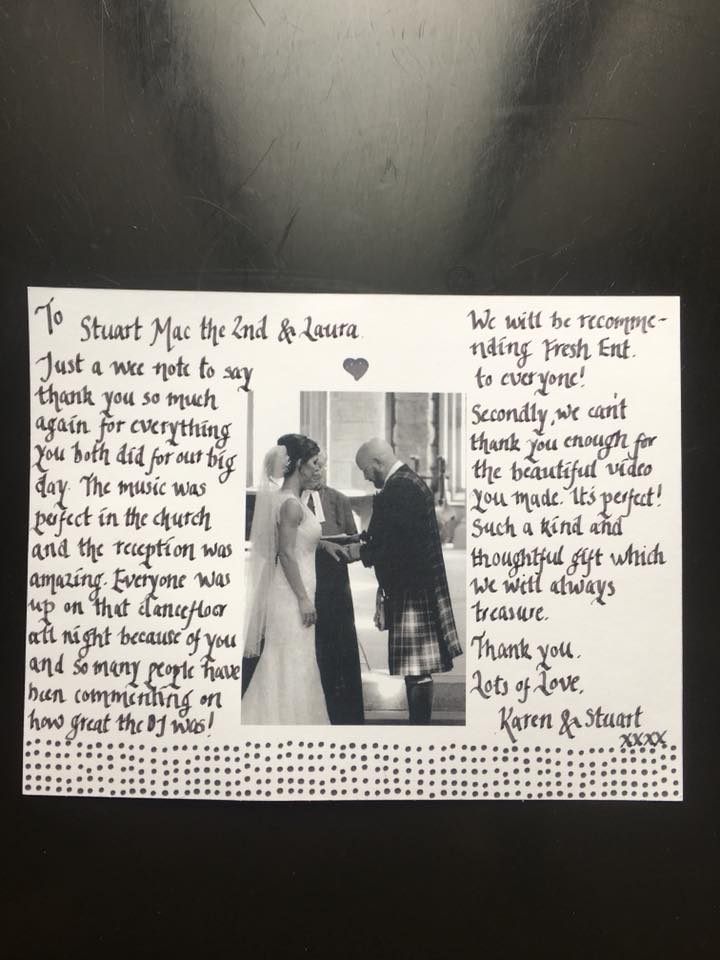 To Stuart Mac the 2nd & Laura
Just a wee note to say
thank you so much
again for everything
you both did for our big
day. The music was
perfect in the church
and the reception was
amazing. Everyone was
up on that dancefloor
all night because of you
and so many people have
been commenting on
how great the DJ was!
We will be recomme-
nding Fresh Ent.
to everyone!
Secondly, we can't
thank you enough for
the beautiful video
you made. It's perfect!
Such a kind and
thoughtful gift which
we will always
treasure.
Thank you.
Lots of Love,
Karen & Stuart
xxxx